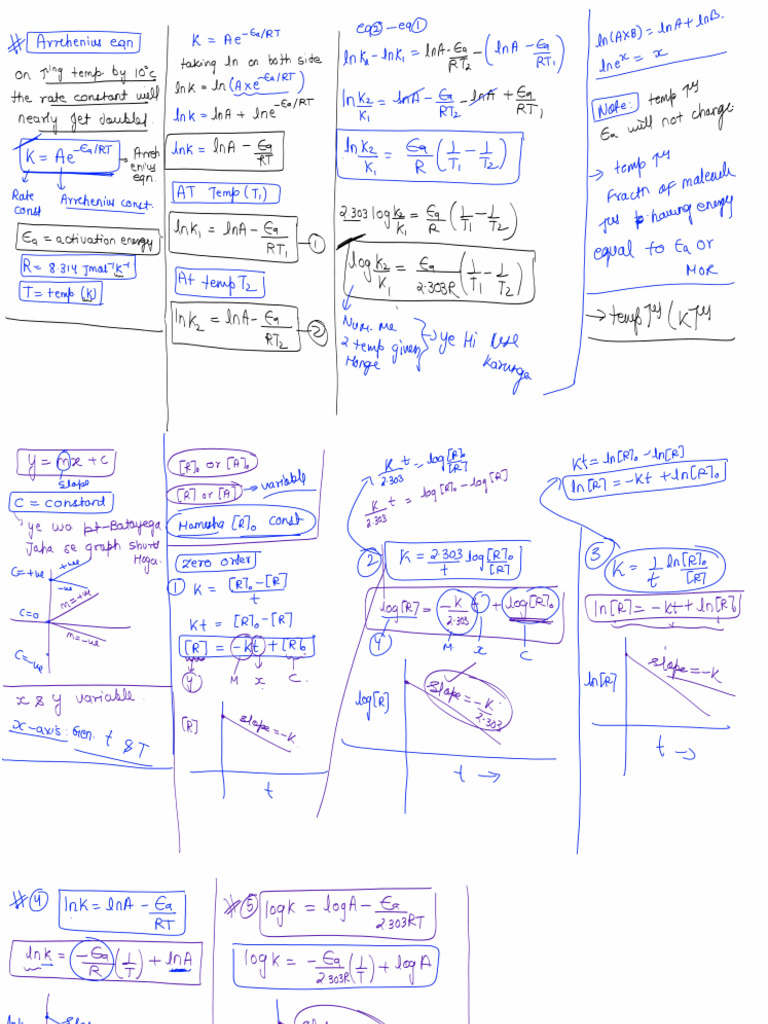 # Arrehenius eqn
on ↑ing temp by 10°c
the rate constant will
nearly get doubled.
K = Ae^-Ea/RT → Arrehenius eqn.
Rate const
Arrhenius const.
Ea = activation energy
R = 8.314 Jmol⁻¹K⁻¹
T = temp (K)
K = Ae^-Ea/RT
taking ln on both side
lnK = ln(A×e^-Ea/RT)
lnK = lnA + lne^-Ea/RT
lnK = lnA - Ea/RT
AT Temp (T₁)
lnK₁ = lnA - Ea/RT₁ — ①
At temp T₂
lnK₂ = lnA - Ea/RT₂ — ②
eq② - eq①
lnK₂ - lnK₁ = lnA - Ea/RT₂ - (lnA - Ea/RT₁)
ln K₂/K₁ = lnA - Ea/RT₂ - lnA + Ea/RT₁
ln K₂/K₁ = Ea/R (1/T₁ - 1/T₂)
2.303 log K₂/K₁ = Ea/R (1/T₁ - 1/T₂)
log K₂/K₁ = Ea/2.303R (1/T₁ - 1/T₂)
Num. me
2 temp given
Honge
→ ye Hi Use
Karunga
ln(A×B) = lnA + lnB.
lne^x = x
Note: temp ↑es
Ea will not change.
→ temp ↑es
Fractn of molecule
↑es having energy
equal to Ea or
MOR
→ temp↑es (K↑es
y = mx + c
slope
C = constant
ye wo pt Batayega
Jaha se graph shuru
Hoga.
C=+ve
+ve
-ve
C=0
m=+ve
m=-ve
C=-ve
x & y variable.
x-axis: Gen. t
& T
[R]₀ or [A]₀
[R] or [A] → variable
Hamesha [R]₀ const
Zero order
① K = [R]₀-[R]/t
Kt = [R]₀-[R]
[R] = -Kt + [R]₀
y M x C
[R]
slope=-K
t
K/2.303 t = log [R]₀/[R]
K/2.303 t = log[R]₀ - log[R]
② K = 2.303/t log [R]₀/[R]
log[R] = -K/2.303 t + log[R]₀
y M x C
log[R]
slope = -K/2.303
t →
Kt = ln[R]₀ - ln[R]
ln[R] = -Kt + ln[R]₀
③ K = 1/t ln [R]₀/[R]
ln[R] = -Kt + ln[R]₀
ln[R]
slope=-K
t →
# ④ lnK = lnA - Ea/RT
lnK = -Ea/R (1/T) + lnA
# ⑤ logK = logA - Ea/2.303RT
logK = -Ea/2.303R (1/T) + logA